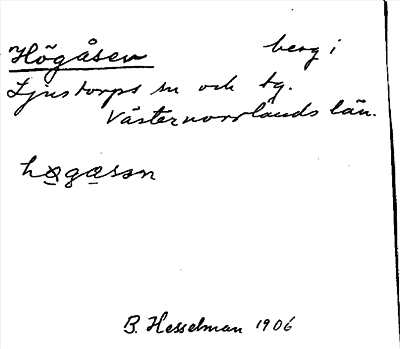 Högåsen berg i
Ljustorps sn och tg.
Västernorrlands län.
høgåsən
B. Hesselman 1906